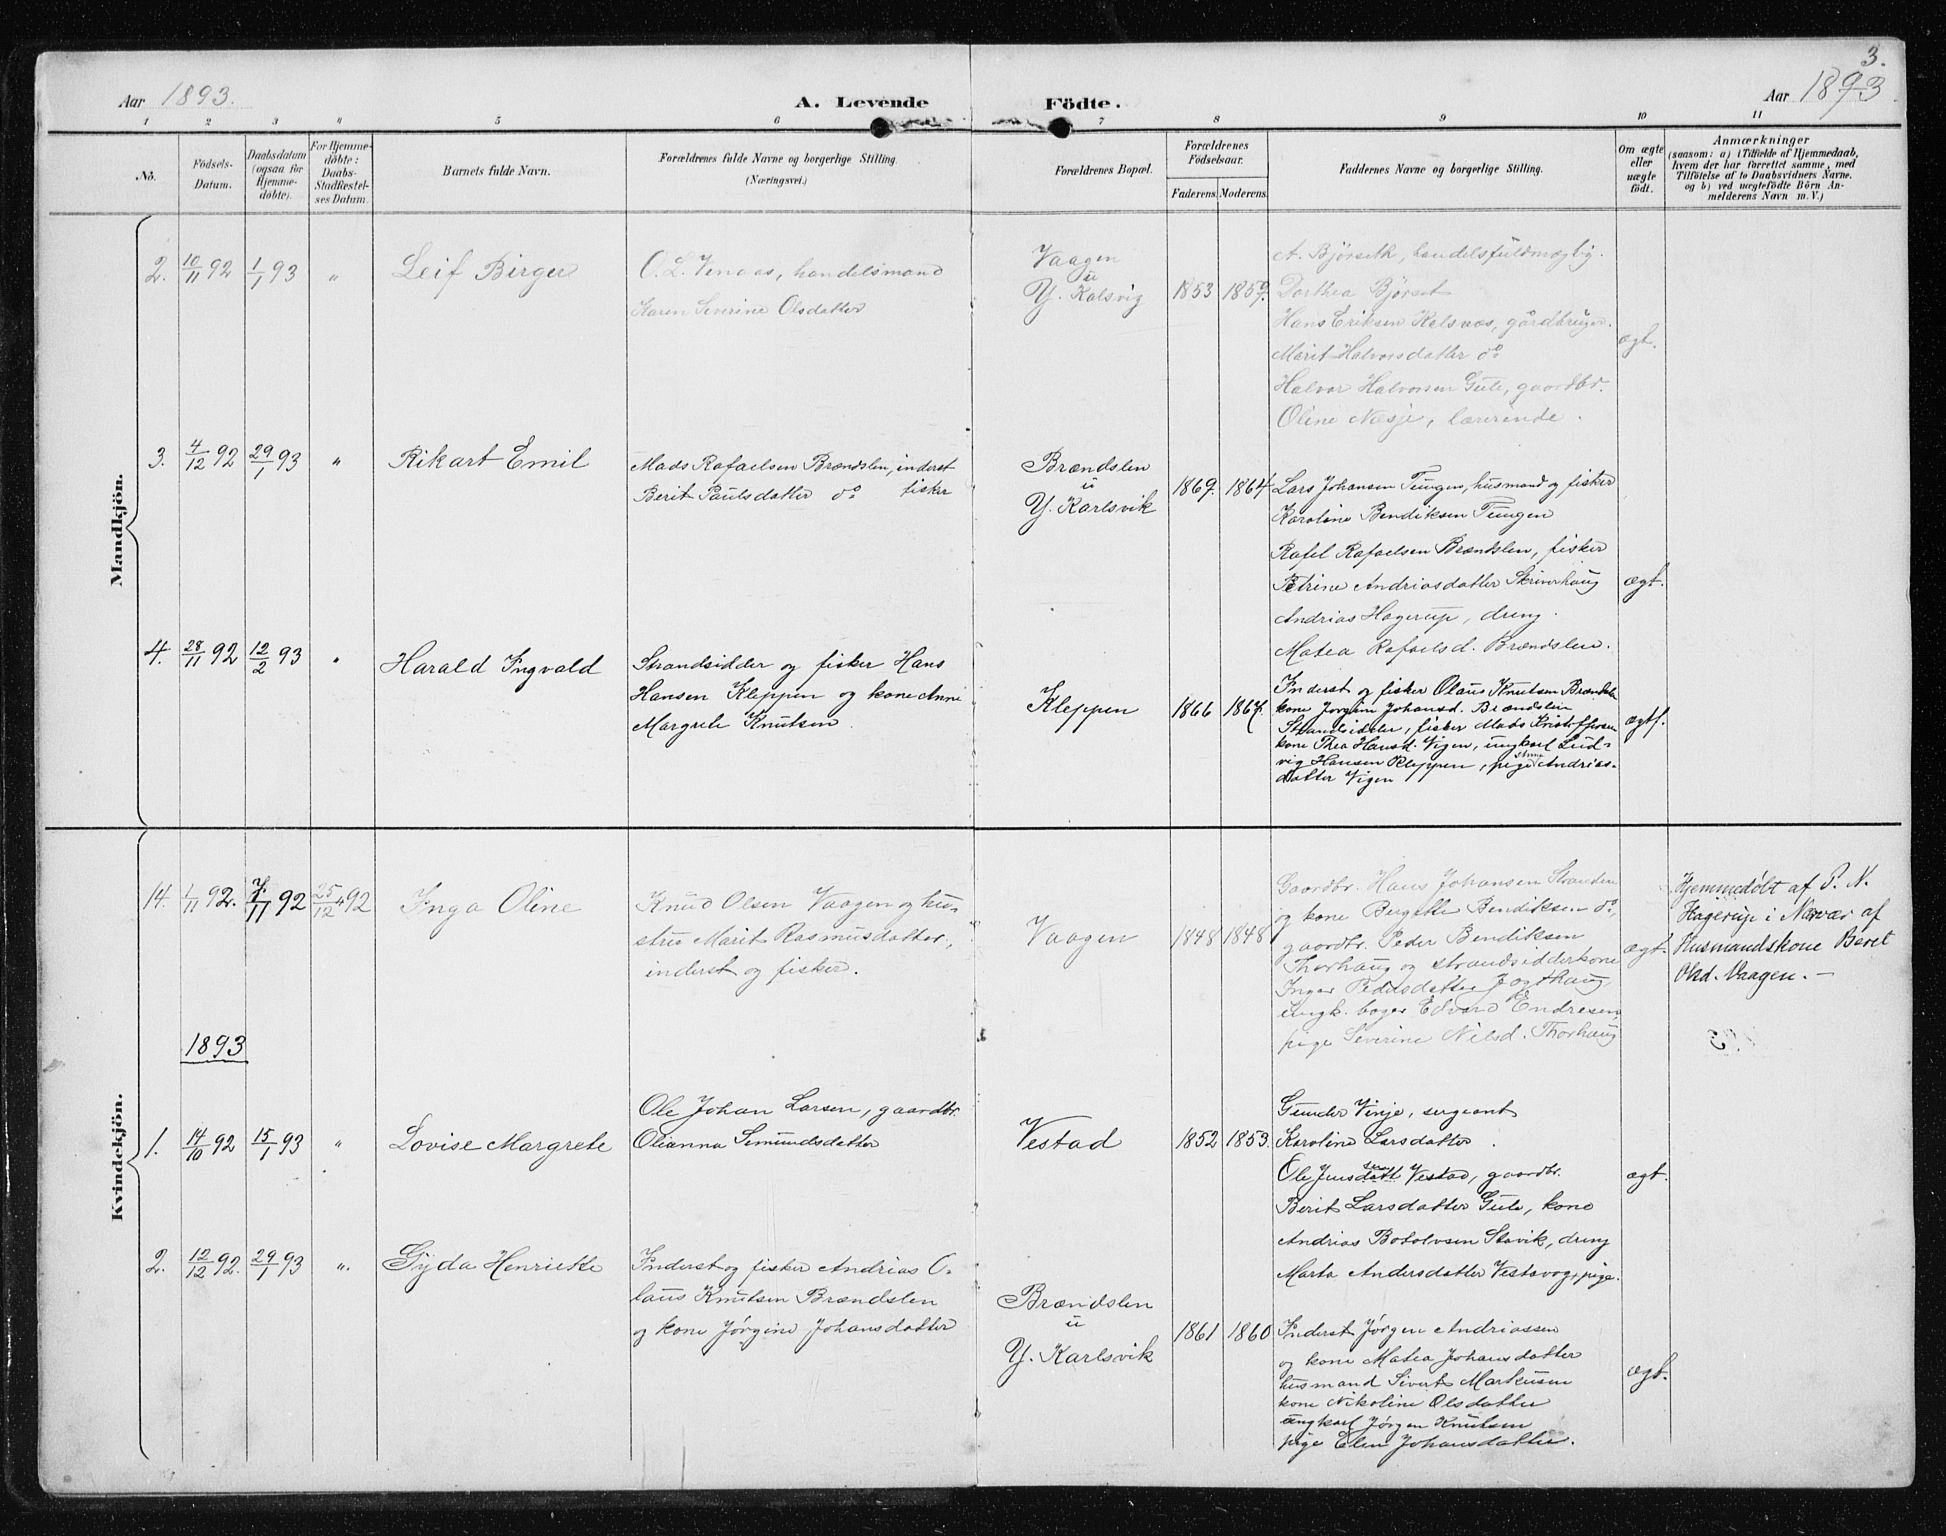 3.
Aar 1893. A. Levende Födte. Aar 1893
1 2 3 4 5 6 7 8 9 10 11
No.
Födsels-
Datum.
Daabsdatum
(ogsaa for
Hjemme-
döbte).
For Hjemme-
döbte:
Daabs-
Stadfæstel-
ses Datum.
Barnets fulde Navn.
Forældrenes fulde Navne og borgerlige Stilling.
(Næringsvei.)
Forældrenes Bopæl.
Forældrenes
Födselsaar.
Faderens. Moderens.
Faddernes Navne og borgerlige Stilling.
Om ægte
eller
uægte
födt.
Anmærkninger
(saasom: a) i Tilfælde af Hjemmedaab,
hvem der har forrettet samme, med
Tilföielse af to Daabsvidners Navne.
og b) ved uægtefödte Börn An-
melderens Navn m. V.)
Mandkjön.
2. 10/11 92 1/1 93 " Leif Birger
O. L. Venaas, handelsmand
Karen Severine Olsdatter
Vaagen
u
Y. Kalsvig
1853 1859.
A. Bjørseth, handelsfuldmægtig.
Dorthea Bjørset
Hans Eriksen Kalsnæs, gårdbruger.
Marit Halvorsdatter do
Halvor Halvorsen Gule, gaardbr.
Oline Næsje, lærerinde.
ægt.
3. 4/12 92 29/1 93 " Rikart Emil
Mads Rafaelsen Brændslen, inderst
Berit Paulsdatter do fisker
Brændslen
u
Y. Karlsvik
1869. 1864
Lars Johansen Tungen, husmand og fisker
Karoline Bendiksen Tungen
Rafel Rafaelsen Brændslen, fisker
Petrine Andriasdatter Skriverhaug
Andrias Hagerup, dreng.
Matea Rafaelsd. Brændslen.
ægt.
4. 28/11 92 12/2 93 " Harald Ingvald
Strandsidder og fisker Hans
Hansen Kleppen og kone Anne
Margrete Knutsen.
Kleppen
1866 1867.
Inderst og fisker Olaus Knutsen Brændslen
kone Jørgine Johansd. Brændslen
Strandsidder, fisker Mads Kristoffersen
kone Thea Hansd. Vigen, ungkarl Lud-
vig Hansen Kleppen, pige Andrias-
datter Vigen
ægt.
Kvindekjön.
14. 1/11 92. 7/11 92 25/12 92 Inga Oline
Knud Olsen Vaagen og hu-
stru Marit Rasmusdatter,
inderst og fisker.
Vaagen
1848 1848
Gaardbr. Hans Johansen Stranden
og kone Bergitte Bendiksen do,
gaardbr. Peder Bendiksen
Thorhaug og strandsidderkone
Inger Pedersdatter Jogthaug,
ungk. bager Edvard Endresen,
pige Severine Nilsd. Thorhaug
ægt.
Hjemmedøbt af P. N.
Hagerup i Nærvær af
Husmandskone Beret
Olsd. Vaagen. —
1893
1. 14/10 92 15/1 93 " Lovise Margrete
Ole Johan Larsen, gaardbr.
Olianna Semundsdatter
Vestad
1852 1853.
Gunder Vinje, sergeant
Karoline Larsdatter.
Ole Jensdatt sen Vestad, gaardbr.
Berit Larsdatter Gule, kone
Andrias Botolvsen Stavik, dreng
Marta Andersdatter Vestavog, pige.
ægt.
2. 12/12 92. 29/1 93 ". Gyda Henriette
Inderst og fisker Andrias O-
laus Knutsen Brændslen
og kone Jørgine Johansdatter
Brændslen
u
Y. Karlsvik
1861 1860
Inderst Jørgen Andriassen
og kone Matea Johansdatter
husmand Sivert Markusen
kone Nikoline Olsdatter
ungkarl Jørgen Knutsen
pige Elen Johansdatter.
ægt.